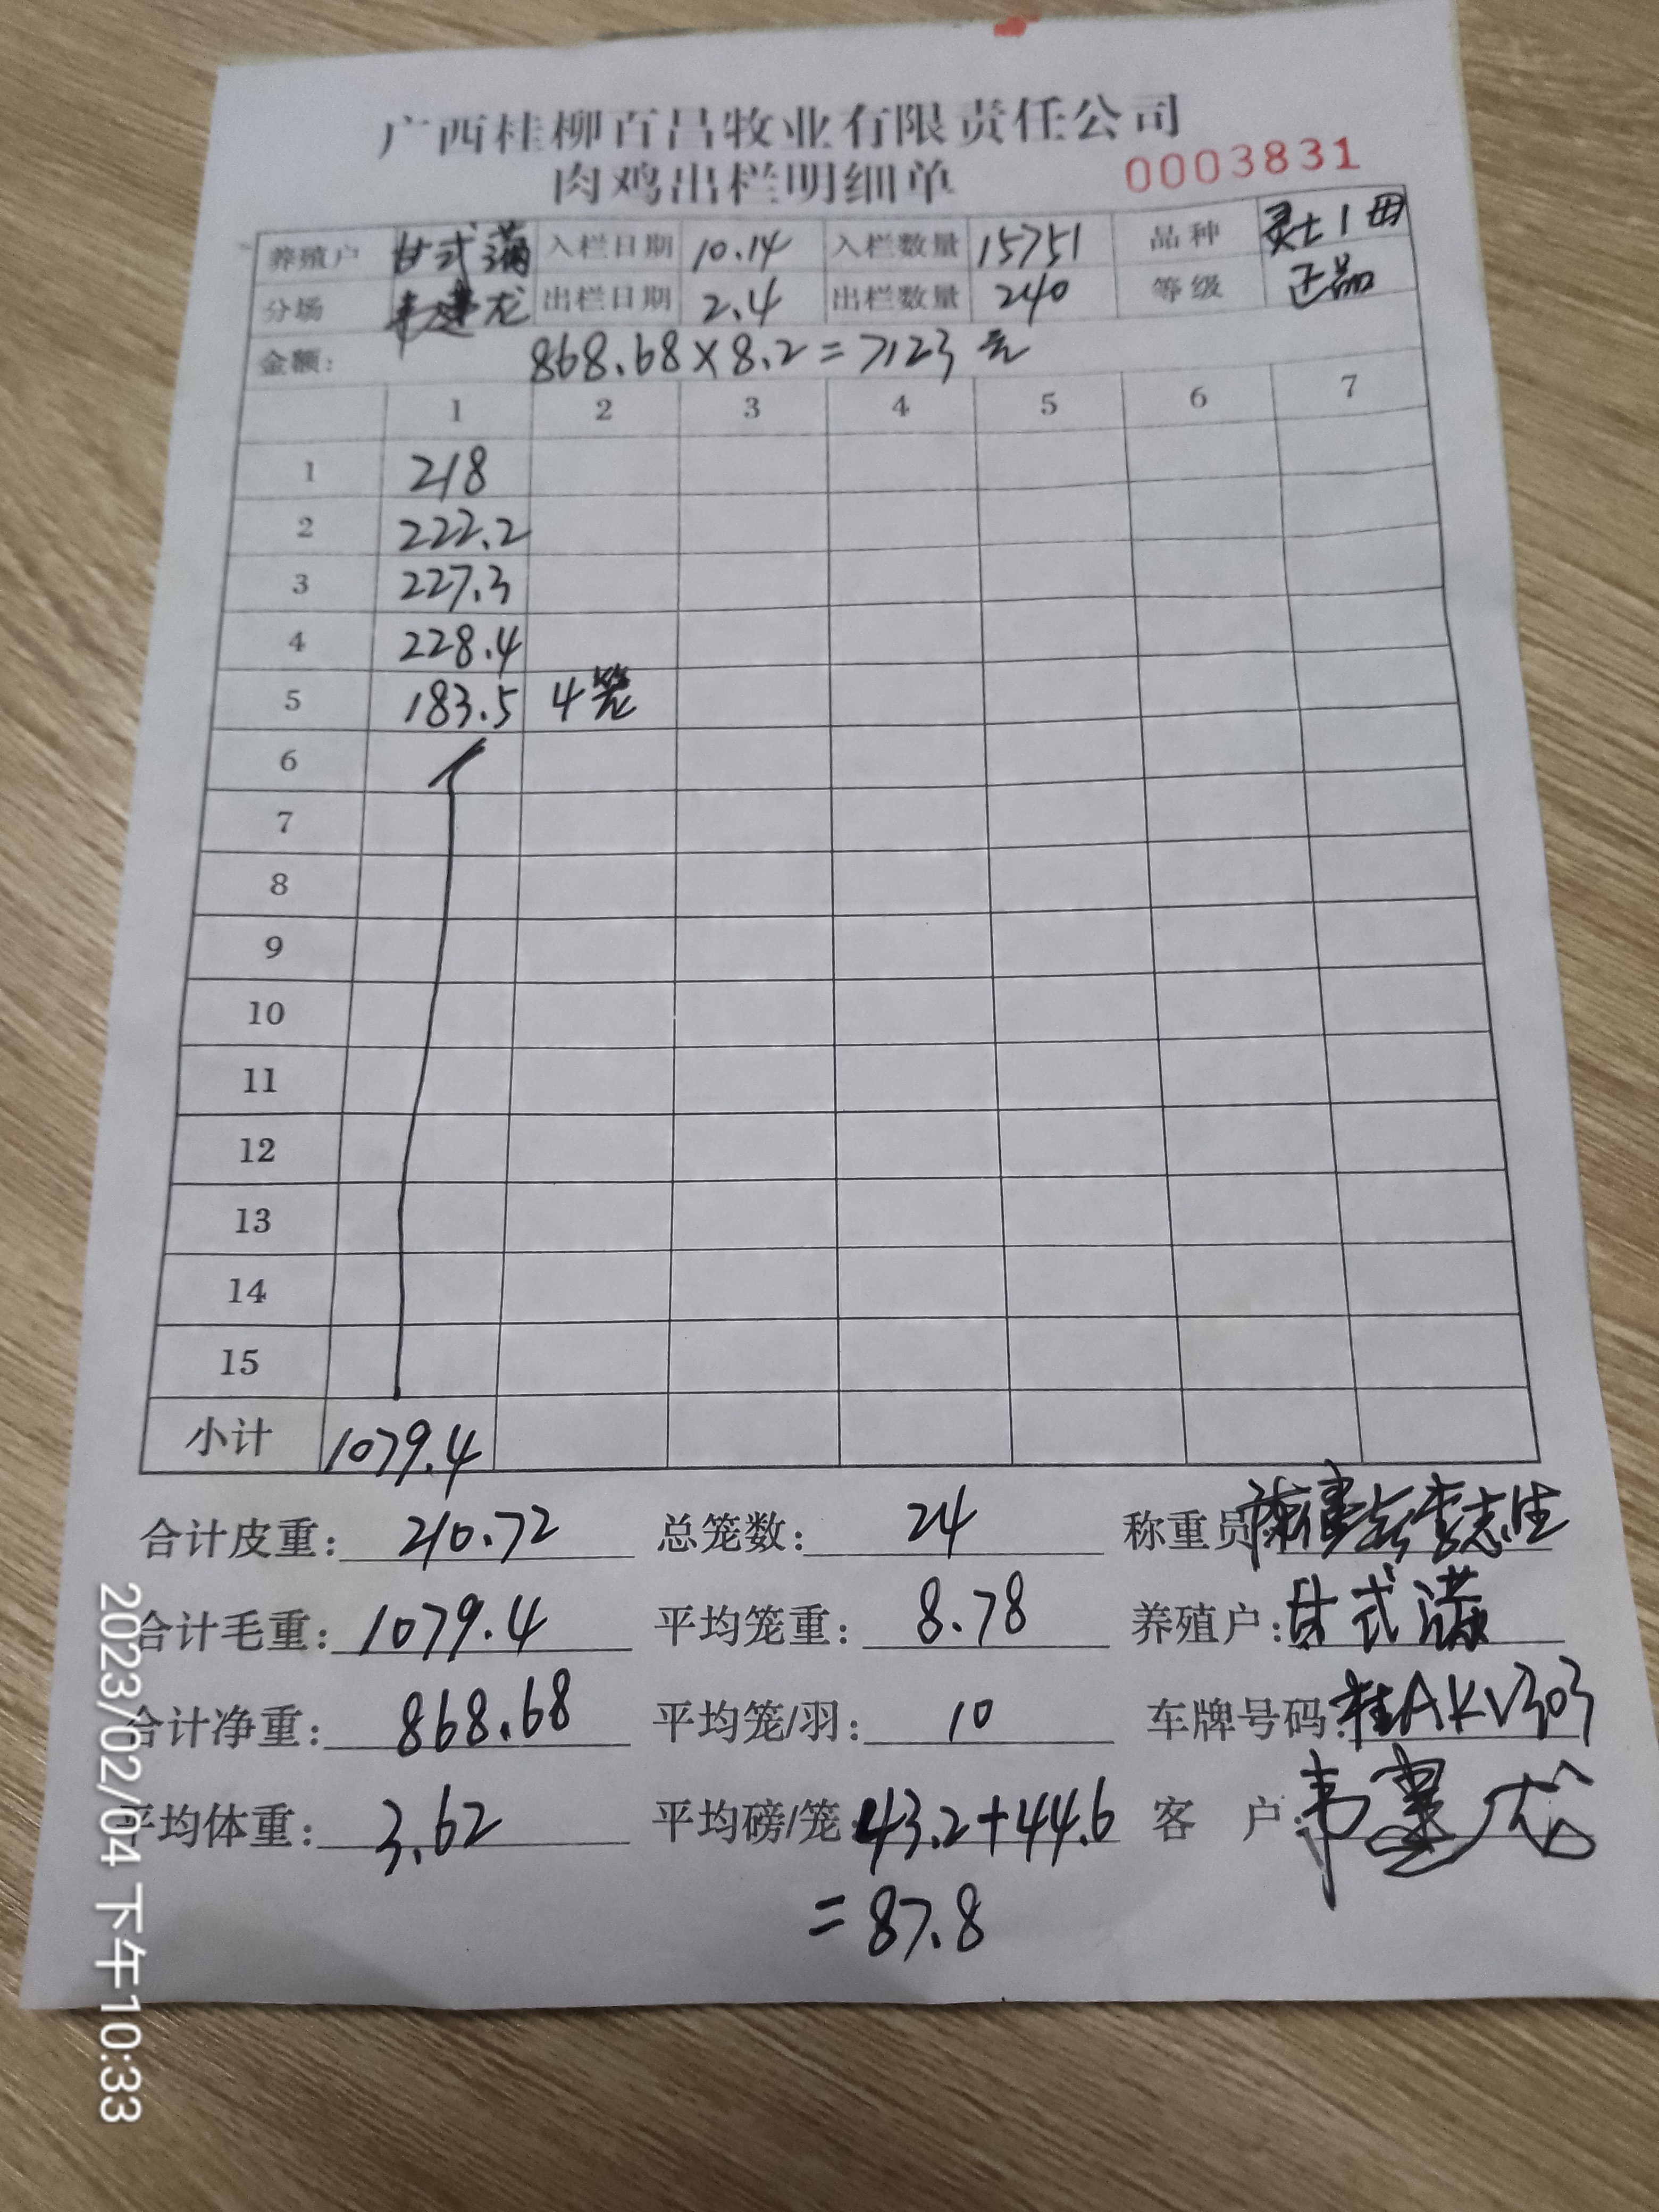 广西桂柳百昌牧业有限责任公司
肉鸡出栏明细单 0003831
养殖户 甘式满 入栏日期 10.14 入栏数量 15751 品种 灵土1
分场 韦建龙 出栏日期 2.4 出栏数量 240 等级 正品
金额: 868.68×8.2=7123元
1 2 3 4 5 6 7
1 218
2 222.2
3 227.3
4 228.4
5 183.5 4笼
6
7
8
9
10
11
12
13
14
15
小计 1079.4
合计皮重: 210.72 总笼数: 24 称重员 李志生
合计毛重: 1079.4 平均笼重: 8.78 养殖户: 甘式满
合计净重: 868.68 平均笼/羽: 10 车牌号码: 桂AKV303
平均体重: 3.62 平均磅/笼: 43.2+44.6 客户: 韦建龙
=87.8
2023/02/04 下午10:33